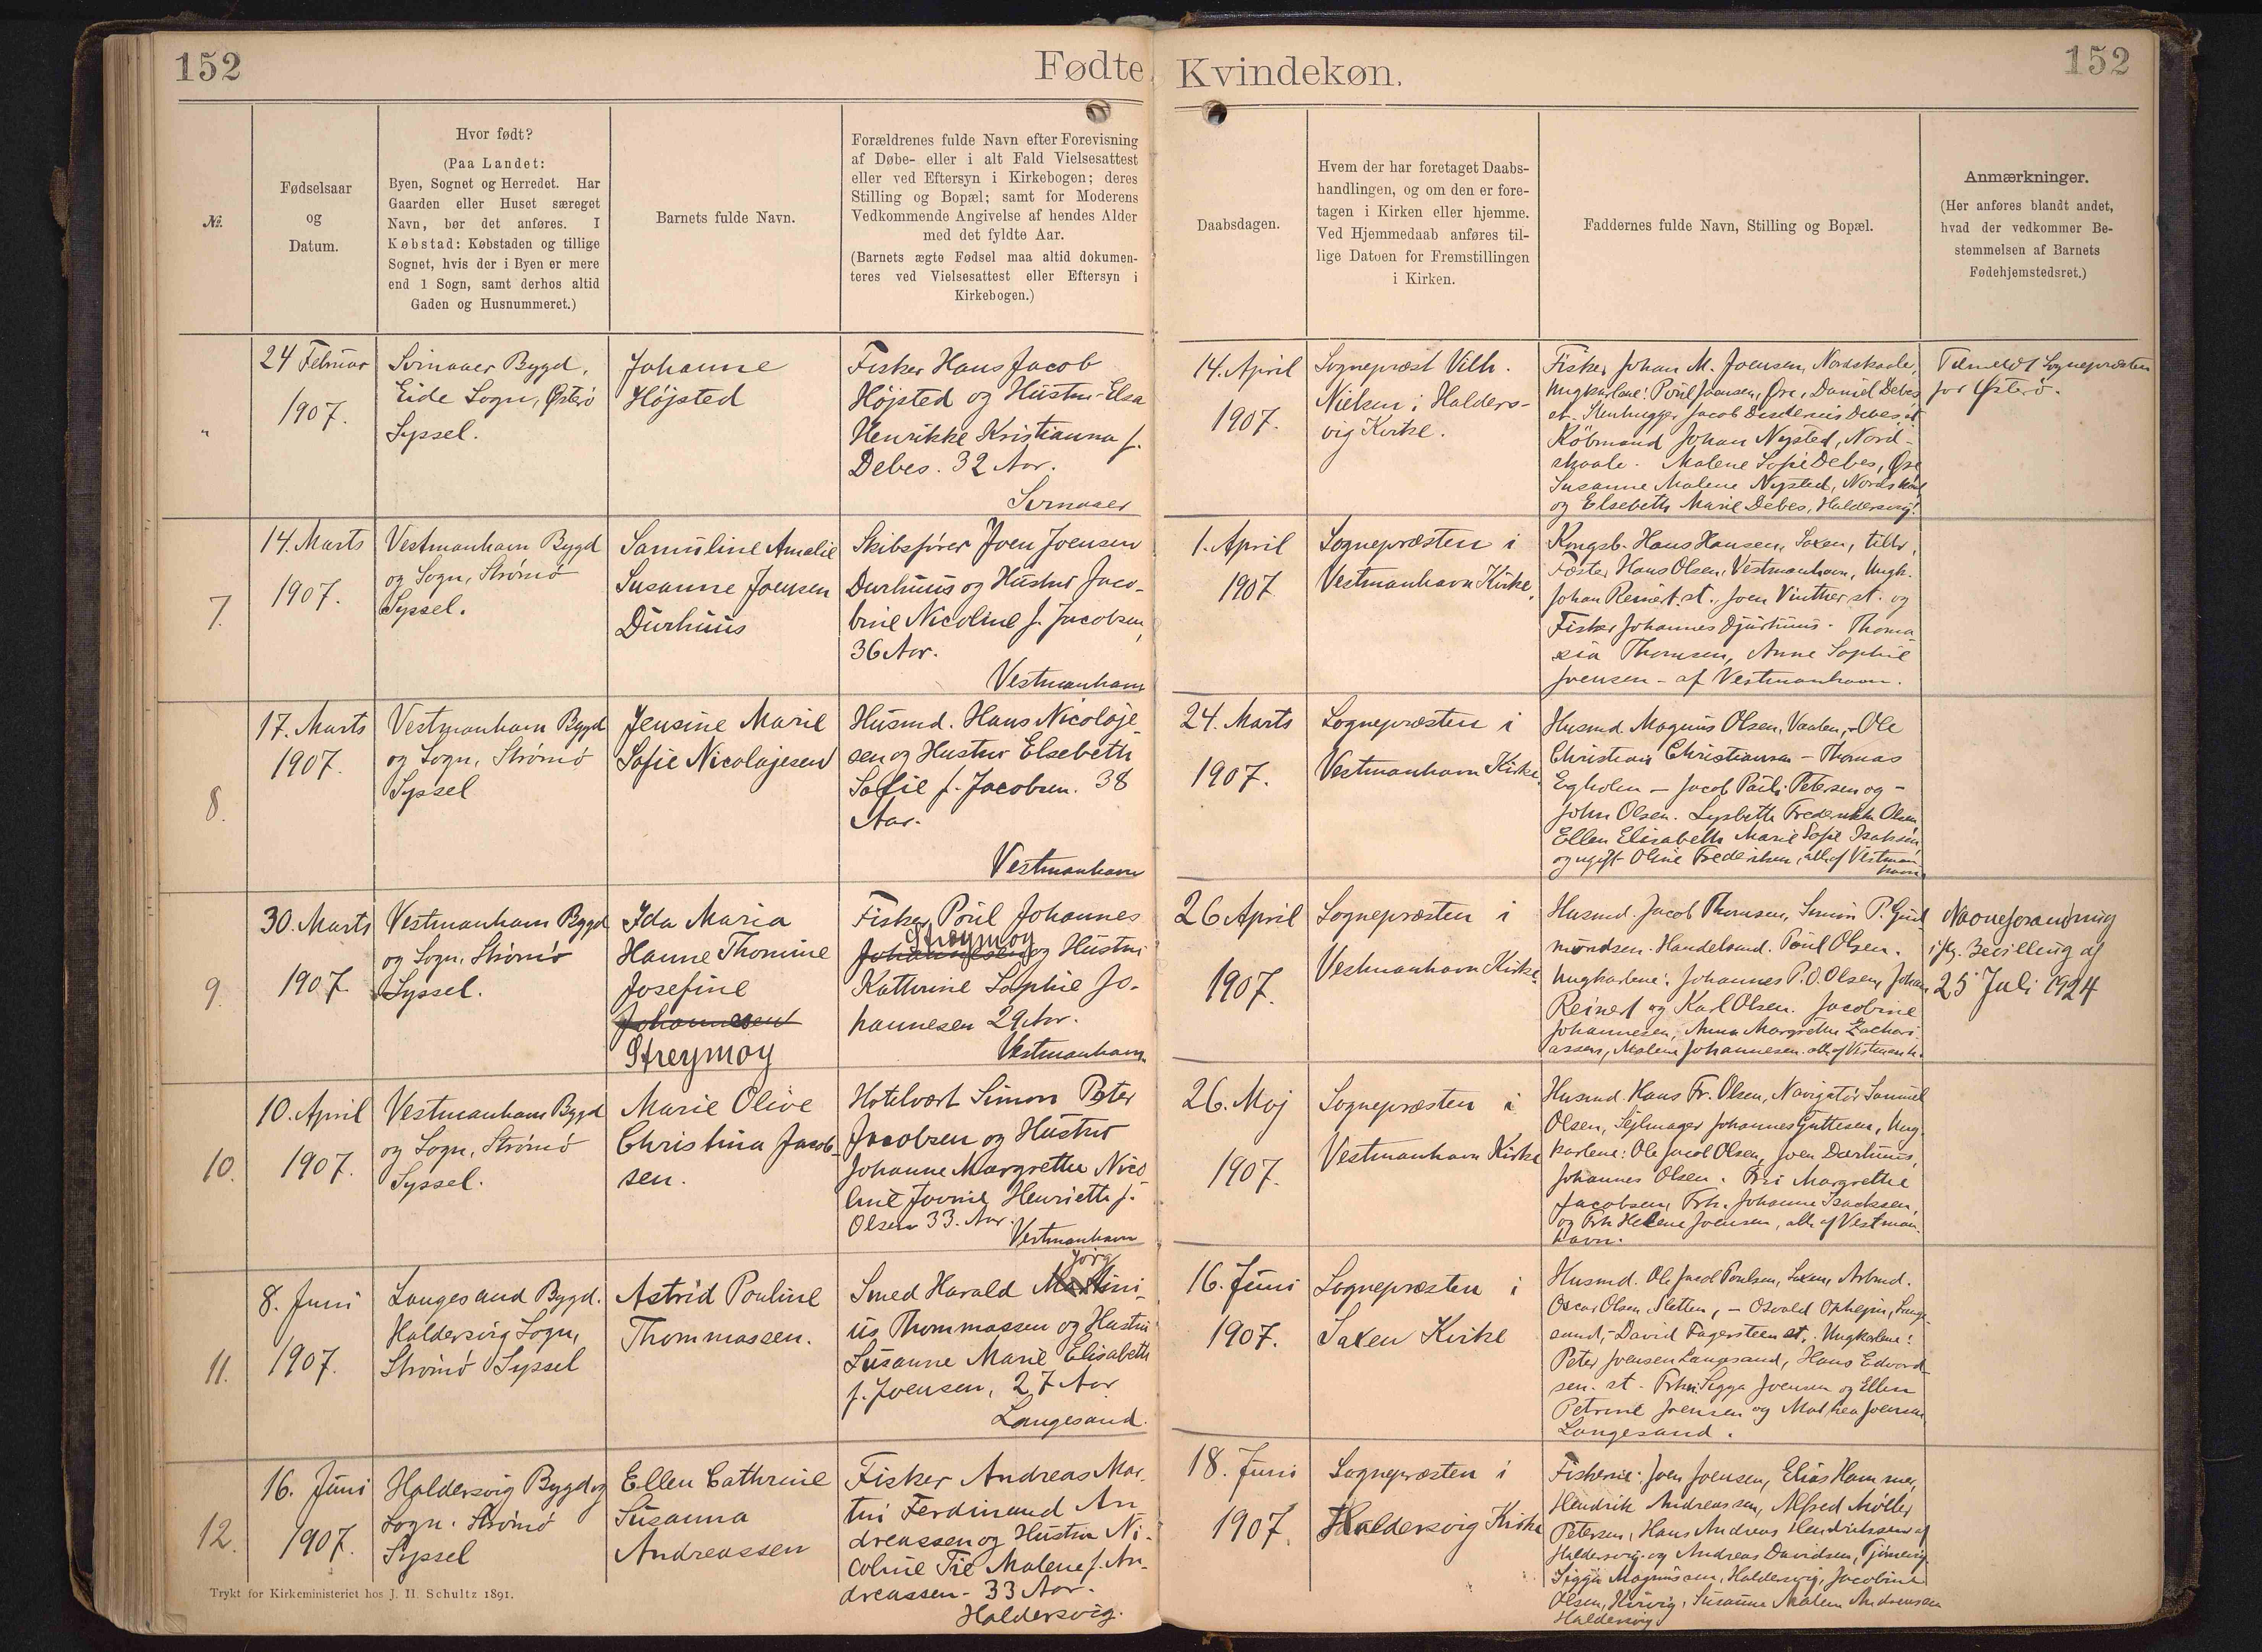 152
Fødte
№.
Fødselsaar
og
Datum.
Hvor født?
(Paa Landet:
Byen, Sognet og Herredet. Har
Gaarden eller Huset særeget
Navn, bør det anføres. I
Købstad: Købstaden og tillige
Sognet, hvis der i Byen er mere
end 1 Sogn, samt derhos altid
Gaden og Husnummeret.)
Barnets fulde Navn.
Forældrenes fulde Navn efter Forevisning
af Døbe- eller i alt Fald Vielsesattest
eller ved Eftersyn i Kirkebogen; deres
Stilling og Bopæl; samt for Moderens
Vedkommende Angivelse af hendes Alder
med det fyldte Aar.
(Barnets ægte Fødsel maa altid dokumen-
teres ved Vielsesattest eller Eftersyn i
Kirkebogen.)
"
24 Februar
1907.
Svinaaer Bygd,
Eide Sogn, Østerø
Syssel.
Johanne
Højsted
Fisker Hans Jacob
Højsted og Hustru Elsa
Henrikke Kristianna f.
Debes. 32 Aar.
Svinaaer
7.
14. Marts
1907.
Vestmanhavn Bygd
og Sogn, Strømø
Syssel.
Samuline Amalie
Susanne Joensen
Durhuus
Skibsfører Joen Joensen
Durhuus og Hustru Jaco-
bine Nicoline f. Jacobsen,
36 Aar.
Vestmanhavn
8.
17. Marts
1907.
Vestmanhavn Bygd
og Sogn, Strømø
Syssel
Jensine Marie
Sofie Nicolajesen
Husmd. Hans Nicolaje-
sen og Hustru Elsebeth
Sofie f. Jacobsen. 38
Aar.
Vestmanhavn
9.
30. Marts
1907.
Vestmanhavn Bygd
og Sogn, Strømø
Syssel.
Ida Maria
Hanne Thomine
Josefine
Johannesen
Streymoy
Fisker Poul Johannes
Streymoy
Johannesen og Hustru
Kathrine Sophie Jo-
hannesen 29 Aar.
Vestmanhavn
10.
10. April
1907.
Vestmanhavn Bygd
og Sogn, Strømø
Syssel.
Marie Olive
Christina Jacob-
sen.
Hotelvært Simon Peter
Jacobsen og Hustru
Johanne Margrethe Nico-
line Henriette f.
Olsen 33. Aar.
Vestmanhavn
11.
8. Juni
1907.
Langesand Bygd.
Haldersvig Sogn,
Strømø Syssel
Astrid Pouline
Thommassen.
Jörg
Smed Harald Martini-
us Thommassen og Hustru
Susanne Marie Elisabeth
f. Joensen, 27 Aar
Langesand.
12.
16. Juni
1907.
Haldersvig Bygd og
Sogn. Strømø
Syssel
Ellen Cathrine
Susanna
Andreassen
Fisker Andreas Mar-
tin Ferdinand An
dreassen og Hustru Ni-
coline Malene f. An-
dreassen. 33 Aar.
Haldersvig.
Trykt for Kirkeministeriet hos J. H. Schultz 1891.
Kvindekøn.
152
Daabsdagen.
Hvem der har foretaget Daabs-
handlingen, og om den er fore-
tagen i Kirken eller hjemme.
Ved Hjemmedaab anføres til-
lige Datoen for Fremstillingen
i Kirken.
Faddernes fulde Navn, Stilling og Bopæl.
Anmærkninger.
(Her anføres blandt andet,
hvad der vedkommer Be-
stemmelsen af Barnets
Fødehjemstedsret.)
14. April
1907.
Sognepræst Vilh.
Nielsen i Halders-
vig Kirke.
Fisker Johan M. Joensen, Nordskaale,
Ungkarlene: Poul Joensen, Øre, Daniel Debes
st. Stenhugger Jacob Desiderius Debes, st
Købmand Johan Nysted, Nord-
skaale. Malene Sofie Debes, Øre
Susanne Malene Nysted, Nordskaal
og Elsebeth Marie Debes, Haldersvig.
Tilmeldt Sognepræsten
for Østerø.
1. April
1907
Sognepræsten i
Vestmanhavn Kirke.
Kongsb. Hans Hansen, Saxen,
Fæster Hans Olsen, Vestmanhavn, Ungk.
Johan Reinert. st., Joen Vinther st. og
Fisker Johannes Djurhuus. Thoma-
sia Thomsen, Anne Sophie
Joensen - af Vestmanhavn.
24. Marts
1907.
Sognepræsten i
Vestmanhavn Kirke
Husmd. Magnus Olsen, - Ole
Christian Christiansen - Thomas
Egholm - Jacob Pauli Petersen og -
John Olsen. Lysbeth Frederikke Olsen
Ellen Elisabeth Marie Sofie Isaksen
og ugift Oline Frederiksen, alle af Vestman-
havn
26 April
1907.
Sognepræsten i
Vestmanhavn Kirke.
Husmd. Jacob Thomsen, Simon P. Gud-
mundsen. Handelsmd. Poul Olsen.
Ungkarlene: Johannes P. O. Olsen, Johan
Reinert og Karl Olsen. Jacobine
Johannesen, Anna Margrethe Zachari-
assen, Malene Johannesen. alle af Vestmanh.
Navneforandring
iflg. Bevilling af
25 Juli 1924
26. Maj
1907.
Sognepræsten i
Vestmanhavn Kirke
Husmd. Hans Fr. Olsen, Navigatør Samuel
Olsen, Sejlmager Johannes Guttesen, Ung-
karlene: Ole Jacob Olsen, Joen Durhuus,
Johannes Olsen. Margrethe
Jacobsen, Frk. Johanne Isacksen,
og Frk Helene Joensen, alle af Vestman-
havn.
16. Juni
1907.
Sognepræsten i
Saxen Kirke
Husmd. Ole Jacob Poulsen, Saxen, Arbmd.
Oscar Olsen, Sletten, - Osvald Ophejm, Lange-
sand, - David Fagersteen st. Ungkarlene:
Peter Joensen Langesand, Hans Edvard-
sen. st. Sigga Joensen og Ellen
Petrine Joensen og Mathea Joensen
Langesand.
18. Juni
1907.
Sognepræsten i
Haldersvig Kirke
Fiskerne: Joen Joensen, Elias Hammer,
Hendrik Andreassen, Alfred Møller
Petersen, Hans Andreas Hendriksen af
Haldersvig og Andreas Davidsen, Tjørnevig.
Sigga Magnussen, Haldersvig, Jacobine
Olsen, Susanne Malene Andreasen
Haldersvig